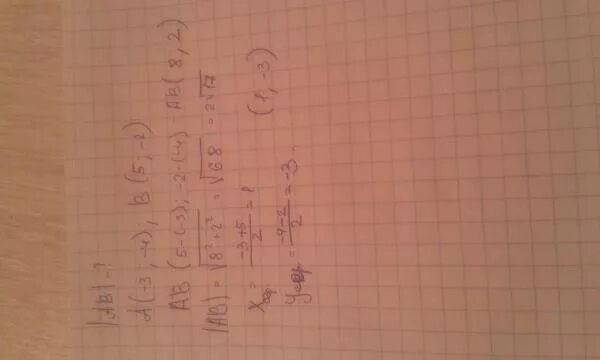 |AB| - ?
A(-3; -4), B(5; -2)
AB(5-(-3); -2-(-4) = AB(8; 2)
|AB| = √8²+2² = √68 = 2√17
Xср = -3+5/2 = 1 (1; -3)
Yср = -4-2/2 = -3.